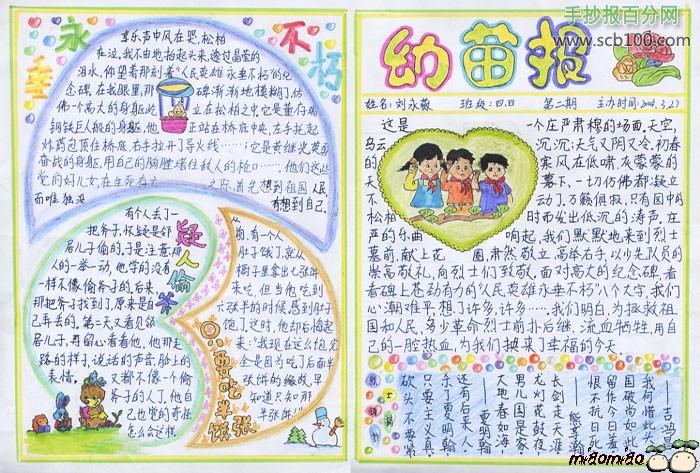 永垂不朽
享乐声中风在哭,松柏
在泣,我不由地抬起头,透过晶莹的
泪水,仰望着那刻着“人民英雄永垂不朽”的纪
念碑,在我眼里,那碑渐渐地模糊了,仿
佛一个高大的身躯屹立在松柏之中,它是董存瑞
钢铁巨人般的身躯,他正站在桥底中央,左手托起
炸药包顶住桥底,右手拉开了导火线……它是黄继光英勇
奋战的身躯,用自己的胸膛堵住敌人的枪口……他们这些
党的好儿女,在生死存亡之际,首先想到祖国人民
而唯独没有想到自己.
疑人偷斧
有个人丢了一
把斧子,怀疑是邻
居儿子偷的.于是注意那
人的一举一动,他穿的没有
一样不像偷斧子的.后来,
那把斧子找到了,原来是自
己弄丢的,第二天又看见邻
居儿子,再留心看看他,他那走
路的样子,说话的声音,脸上的
表情,又都不像一个偷
斧子的人了,他自
己也觉的奇怪
怎么会这样.
只要吃半张饼
从前,有个人
肚子饿了,就从
橱子里拿出七张饼
来吃,但当他吃到
六张半的时候,感到肚子
饱了,这时,他却后悔起
来:“我现在这么饱完
全是因为吃了后面半
张饼的缘故,早
知道只如那
半张饼
幼苗报
姓名:刘永薇 班级:四.四 第二期 主办时间:2004.3.27
这是一个庄严肃穆的场面,天空,
乌云沉沉;天气又阴又冷,初春
的寒风在低啸,灰蒙蒙的
天幕下,一切仿佛都凝立
不动了,万籁俱寂,只有园中的
松柏时而发出低沉的涛声,在
严的乐曲响起,我们默默地来到烈士
墓前,献上花圈,肃然敬立,高举右手,以少先队员的
崇高敬礼,向烈士们致敬,面对高大的纪念碑,看
着碑上苍劲有力的“人民英雄永垂不朽”八个大字,我们
心潮难平,想了许多,许多……我们明白,为拯救祖
国和人民,多少革命烈士前扑后继,流血牺牲,用自
己的一腔热血,为我们换来了幸福的今天.
我何惜此头
国破尚如此
留作今日羞
恨不抗日死
——吉鸿昌
龙灯花鼓夜
长剑走天涯
男儿国是家
大地春如海
——夏明翰
还有后来人.
杀了夏明翰
只要主义真,
砍头不要紧
手抄报百分网
www.scb100.cn
miaomiao